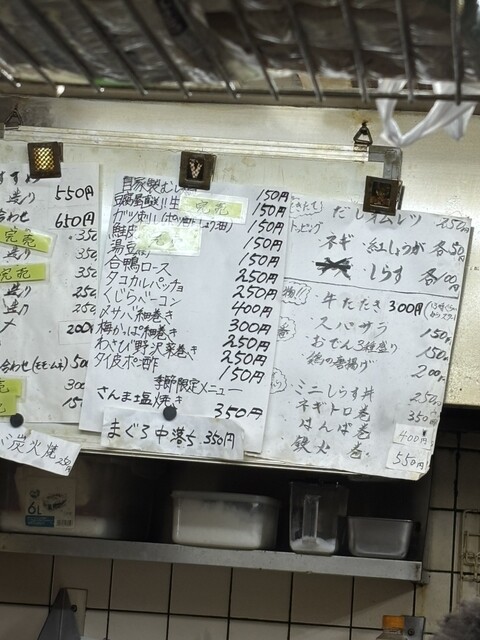 550円
造り
合わせ 650円
完売 350
造り 350
完売 350
造り 250
200円
合わせ
300
150
炭火焼 250
自家製 150円
150円
完売
ガツ刺し 150円
鮭皮 150円
完売
湯豆腐 150円
合鴨ロース 250円
タコカルパッチョ 250円
くじらベーコン 400円
〆サバ細巻き 300円
梅かっぱ細巻き 250円
わさび野沢菜巻き 250円
タイ皮ポン酢 150円
季節限定メニュー
さんま塩焼き 350円
まぐろ中落ち 350円
だしオムレツ 250円
トッピング
ネギ 紅しょうが 各50円
しらす 各100円
牛たたき 300円
スパサラ 150円
おでん3種盛り 150円
鶏の唐揚げ 200円
ミニしらす丼 250円
ネギトロ巻 350円
400円
鉄火巻 550円
6L